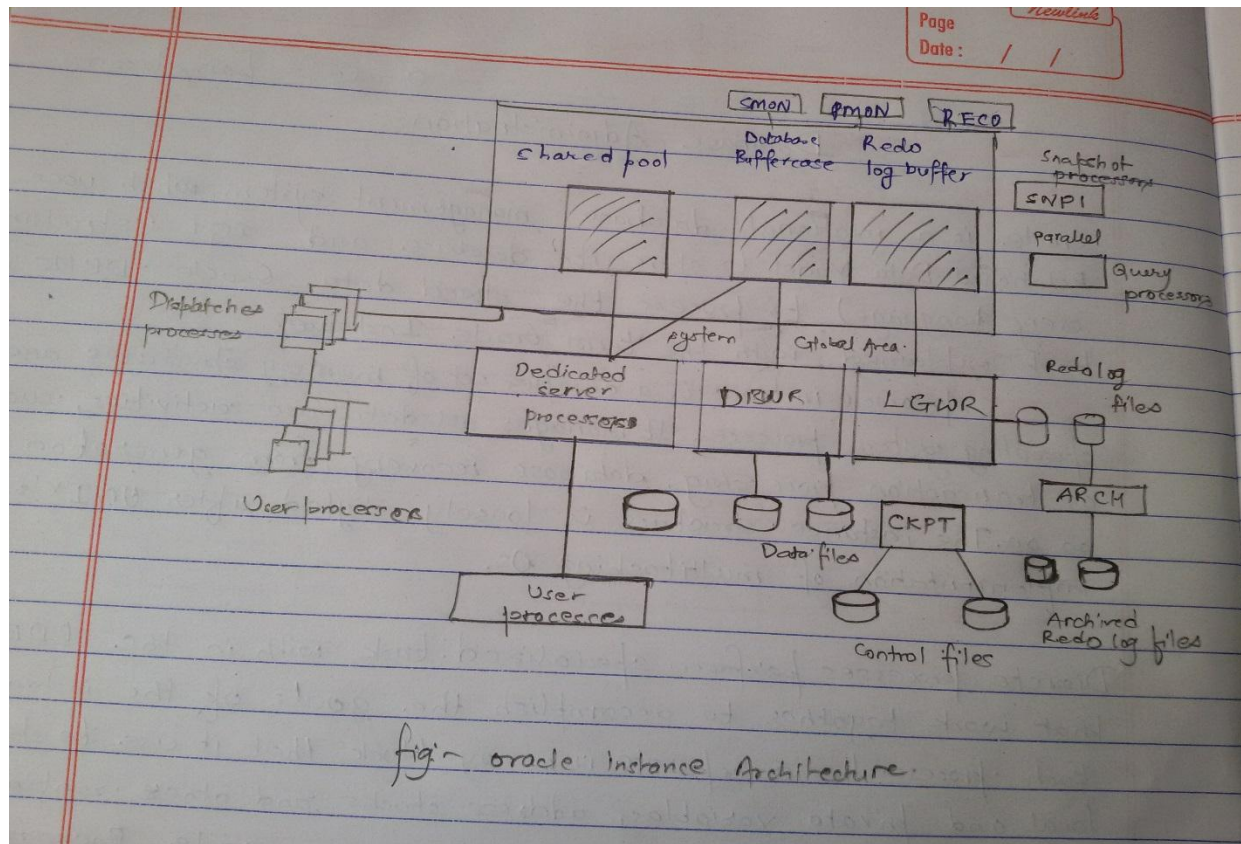 Newlink
Page
Date : / /
SMON
PMON
RECO
shared pool
Database
Buffercase
Redo
log buffer
Snapshot
processors
SNP1
parallel
Query
processors
Dispatches
processes
system
Global Area.
Dedicated
server
processors
DBWR
LGWR
Redolog
files
User processors
ARCH
CKPT
Data files
User
processes
Control files
Archived
Redo log files
fig:- oracle instance Architecture.